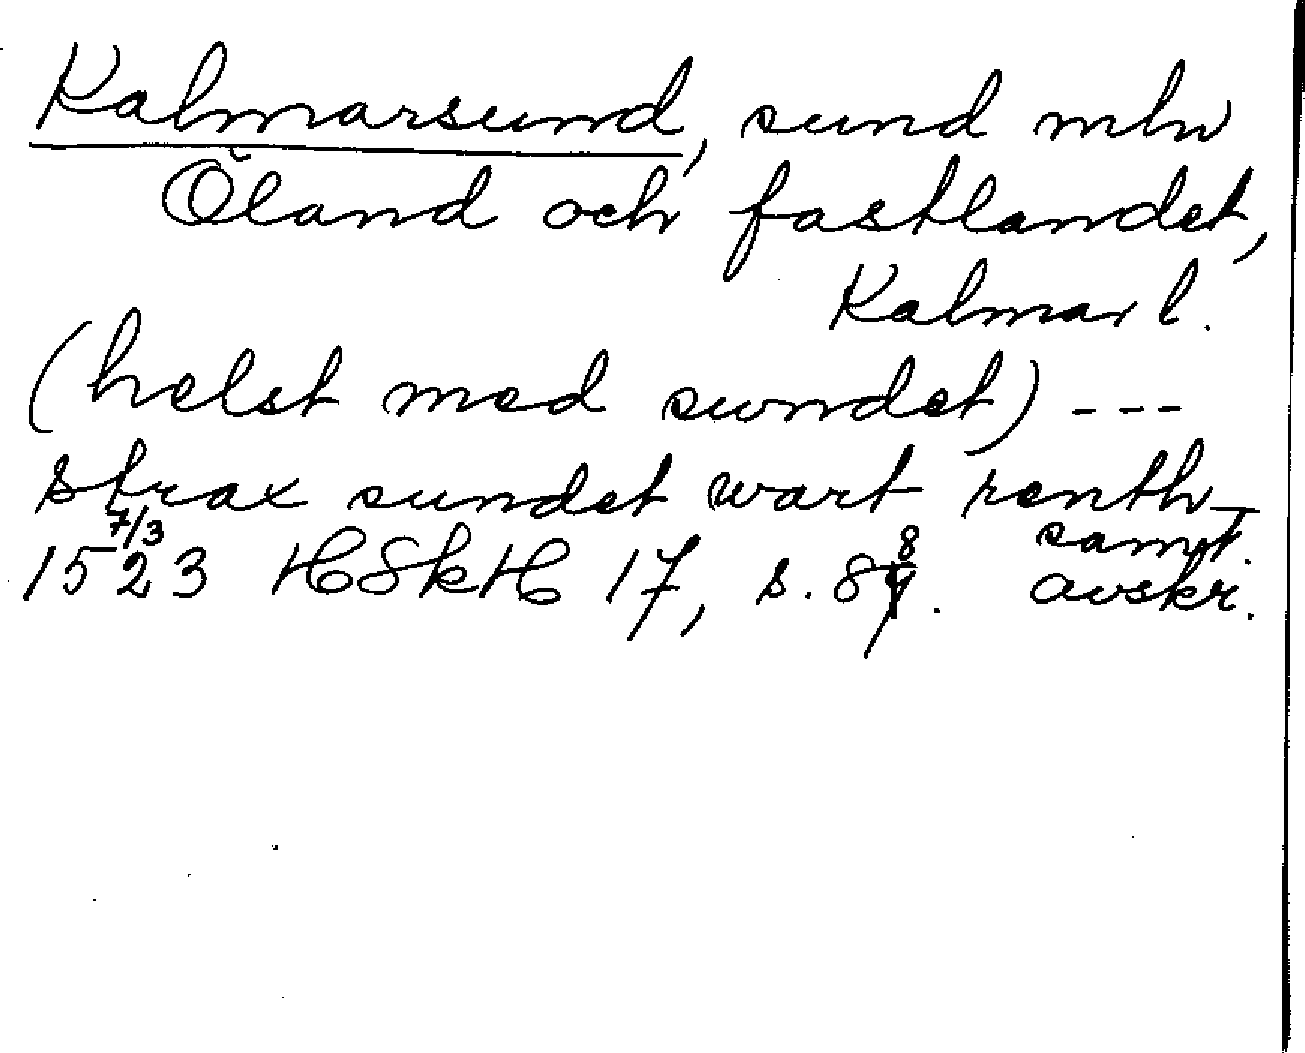 Kalmarsund, sund mln
Öland och fastlandet,
Kalmar l.
(helst med sundet) ---
strax sundet wart renth
1523 7/3 HSkH 17, s. 88. samt. avskr.